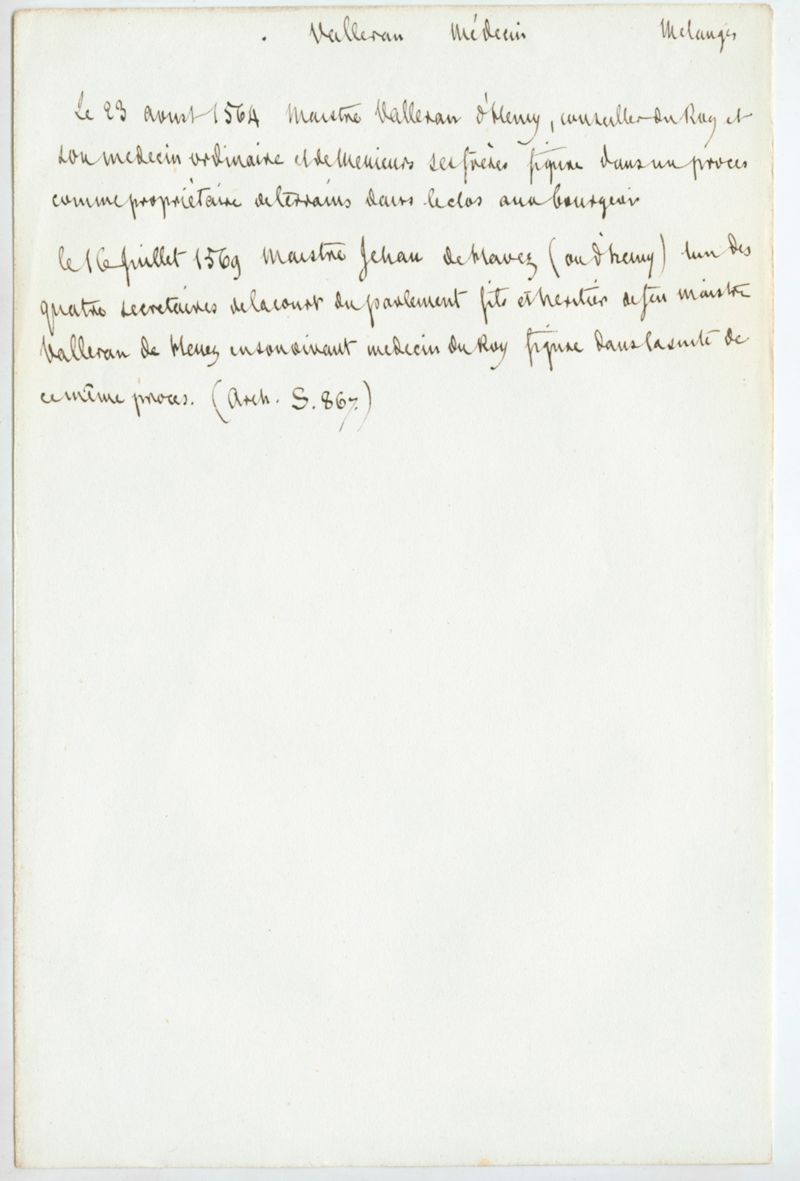 . Valleran Médecin Mélanges
Le 23 aoust 1564 Maistre Valleran d'Hemy, conseiller du Roy et
son medecin ordinaire et de Messieurs ses frères figure dans un proces
comme propriétaire de terrains dans le clos aux bourgeois
le 16 Juillet 1569 Maistre Jehan de Havez (ou d'hemy) lun des
quatre secretaires de la court du parlement fils et heritier de feu maistre
Valleran de Henez en son vivant medecin du Roy figure dans la suite de
ce même proces. (Arch. S. 867.)